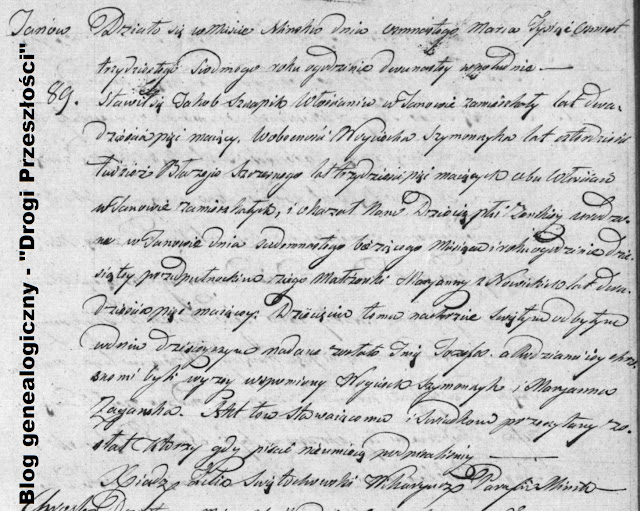 Janów Działo się w Mieście Mińsku dnia osmnastego Marca Tysiąc Osmset
trzydziestego siodmego roku o godzinie dwunasty w południe
89. Stawił się Jakob Szczapik Włościanin w Janowie zamieszkały lat dwa-
dzieścia pięć maiący. W obecności Woyciecha Szymonzyka lat czterdzieści
tudzież Błażeja Szczesnego lat trzydzieści pięć maiących obu Włościan
w Janowie zamieszkałych, i okazał Nam Dziecię płci Żeńskiey urodzo-
ne w Janowie dnia siedemnastego bieżącego Miesiąca i roku o godzinie dzie-
siąty przed południem z iego Małżonki Maryanny z lat dwa-
dzieścia pięć maiący. Dziecięciu temu na Chrzcie Świętym odbytym
w dniu dzisieyszym nadane zostało Imię Jozefa. a Rodzicami iey chrze-
snemi byli wyży wspomniony Woyciech Szymonzyk i Maryanna
Zagańska. Akt ten stawaiącemu i Świadkom przeczytany zo-
stał ktorzy gdy pisać nieumieią podpisaliśmy
Xiądz Felix Świętochowski Wikaryusz Parafii Mińsk
Blog genealogiczny - "Drogi Przeszłości"